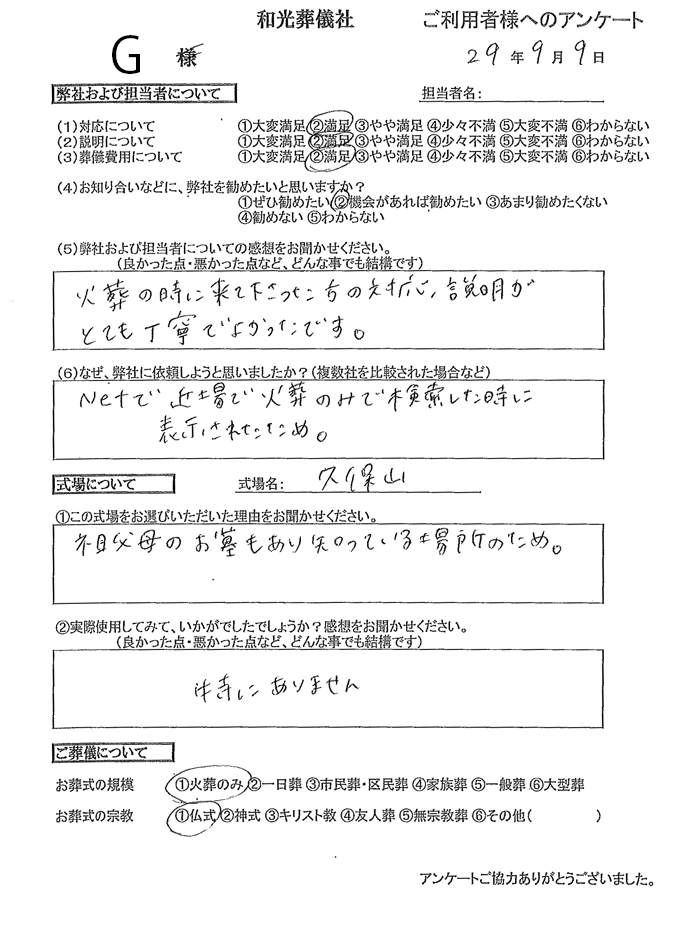 和光葬儀社 ご利用者様へのアンケート
G 様 29年9月9日
弊社および担当者について 担当者名:
(1)対応について ①大変満足 ②満足 ③やや満足 ④少々不満 ⑤大変不満 ⑥わからない
(2)説明について ①大変満足 ②満足 ③やや満足 ④少々不満 ⑤大変不満 ⑥わからない
(3)葬儀費用について ①大変満足 ②満足 ③やや満足 ④少々不満 ⑤大変不満 ⑥わからない
(4)お知り合いなどに、弊社を勧めたいと思いますか?
①ぜひ勧めたい ②機会があれば勧めたい ③あまり勧めたくない
④勧めない ⑤わからない
(5)弊社および担当者についての感想をお聞かせください。
(良かった点・悪かった点など、どんな事でも結構です)
火葬の時に来て下さった方の対応、説明が
とても丁寧でよかったです。
(6)なぜ、弊社に依頼しようと思いましたか?(複数社を比較された場合など)
Netで近場で火葬のみで検索した時に
表示されたため。
式場について 式場名: 久保山
①この式場をお選びいただいた理由をお聞かせください。
祖父母のお墓もあり知っている場所のため。
②実際使用してみて、いかがでしたでしょうか?感想をお聞かせください。
(良かった点・悪かった点など、どんな事でも結構です)
特にありません
ご葬儀について
お葬式の規模 ①火葬のみ ②一日葬 ③市民葬・区民葬 ④家族葬 ⑤一般葬 ⑥大型葬
お葬式の宗教 ①仏式 ②神式 ③キリスト教 ④友人葬 ⑤無宗教葬 ⑥その他( )
アンケートご協力ありがとうございました。